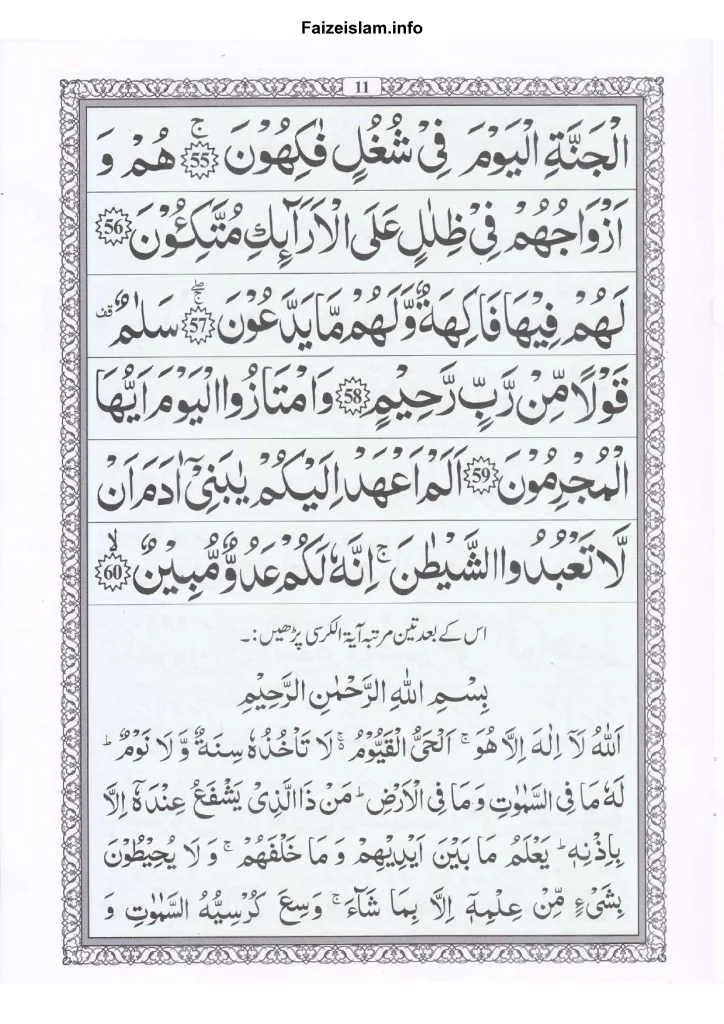 Faizeislam.info
11
الْجَنَّةِ الْيَوْمَ فِيْ شُغُلٍ فٰكِهُوْنَ ۚ 55 هُمْ وَ
اَزْوَاجُهُمْ فِيْ ظِلٰلٍ عَلَى الْاَرَآئِكِ مُتَّكِـُٔوْنَ 56
لَهُمْ فِيْهَا فَاكِهَةٌ وَّلَهُمْ مَّا يَدَّعُوْنَ ۚ ۖ 57 سَلٰمٌ قف
قَوْلًا مِّنْ رَّبٍّ رَّحِيْمٍ 58 وَامْتَازُوا الْيَوْمَ اَيُّهَا
الْمُجْرِمُوْنَ 59 اَلَمْ اَعْهَدْ اِلَيْكُمْ يٰبَنِيْۤ اٰدَمَ اَنْ
لَّا تَعْبُدُوا الشَّيْطٰنَ ۚ اِنَّهٗ لَكُمْ عَدُوٌّ مُّبِيْنٌ ۙ 60
اس کے بعد تین مرتبہ آیۃ الکرسی پڑھیں:۔
بِسْمِ اللهِ الرَّحْمٰنِ الرَّحِيْمِ
اَللهُ لَآ اِلٰهَ اِلَّا هُوَ ۚ اَلْحَيُّ الْقَيُّوْمُ ۬ۚ لَا تَاْخُذُهٗ سِنَةٌ وَّ لَا نَوْمٌ ؕ
لَهٗ مَا فِي السَّمٰوٰتِ وَ مَا فِي الْاَرْضِ ؕ مَنْ ذَا الَّذِيْ يَشْفَعُ عِنْدَهٗۤ اِلَّا
بِاِذْنِهٖ ؕ يَعْلَمُ مَا بَيْنَ اَيْدِيْهِمْ وَ مَا خَلْفَهُمْ ۚ وَ لَا يُحِيْطُوْنَ
بِشَيْءٍ مِّنْ عِلْمِهٖۤ اِلَّا بِمَا شَآءَ ۚ وَسِعَ كُرْسِيُّهُ السَّمٰوٰتِ وَ